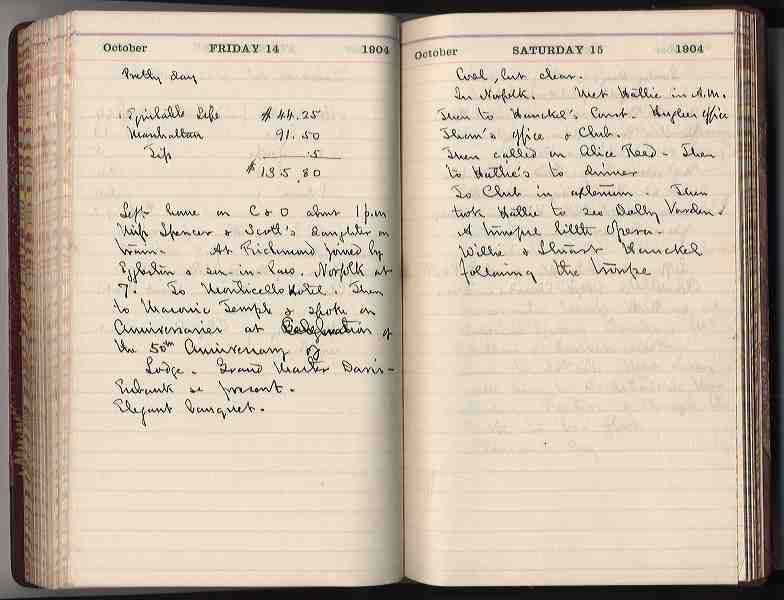 October FRIDAY 14 1904
Pretty day
Equitable Life $44.25
Manhattan 91.50
Tip .5
$135.80
Left home on C & O about 1 p.m
Miss Spencer & Scott's daughter on
train. At Richmond joined by
Eggleston & son-in-law. Norfolk at
7. To Monticello Hotel. Then
to Masonic Temple & spoke on
Anniversaries at Celebration of
the 50th Anniversary of
Lodge. Grand Master Davis-
Eubank &c present.
Elegant banquet.
October SATURDAY 15 1904
Cool, but clear.
In Norfolk. Met Hattie in A.M.
Then to Hanckel's Const. Hughes office
Tham's office & Club.
Then called on Alice Reed - Then
to Hattie's to dinner
To Club in afternoon. Then
took Hattie to see Dolly Varden.
A simple little Opera.
Willie & Stuart Hanckel
following the troupe